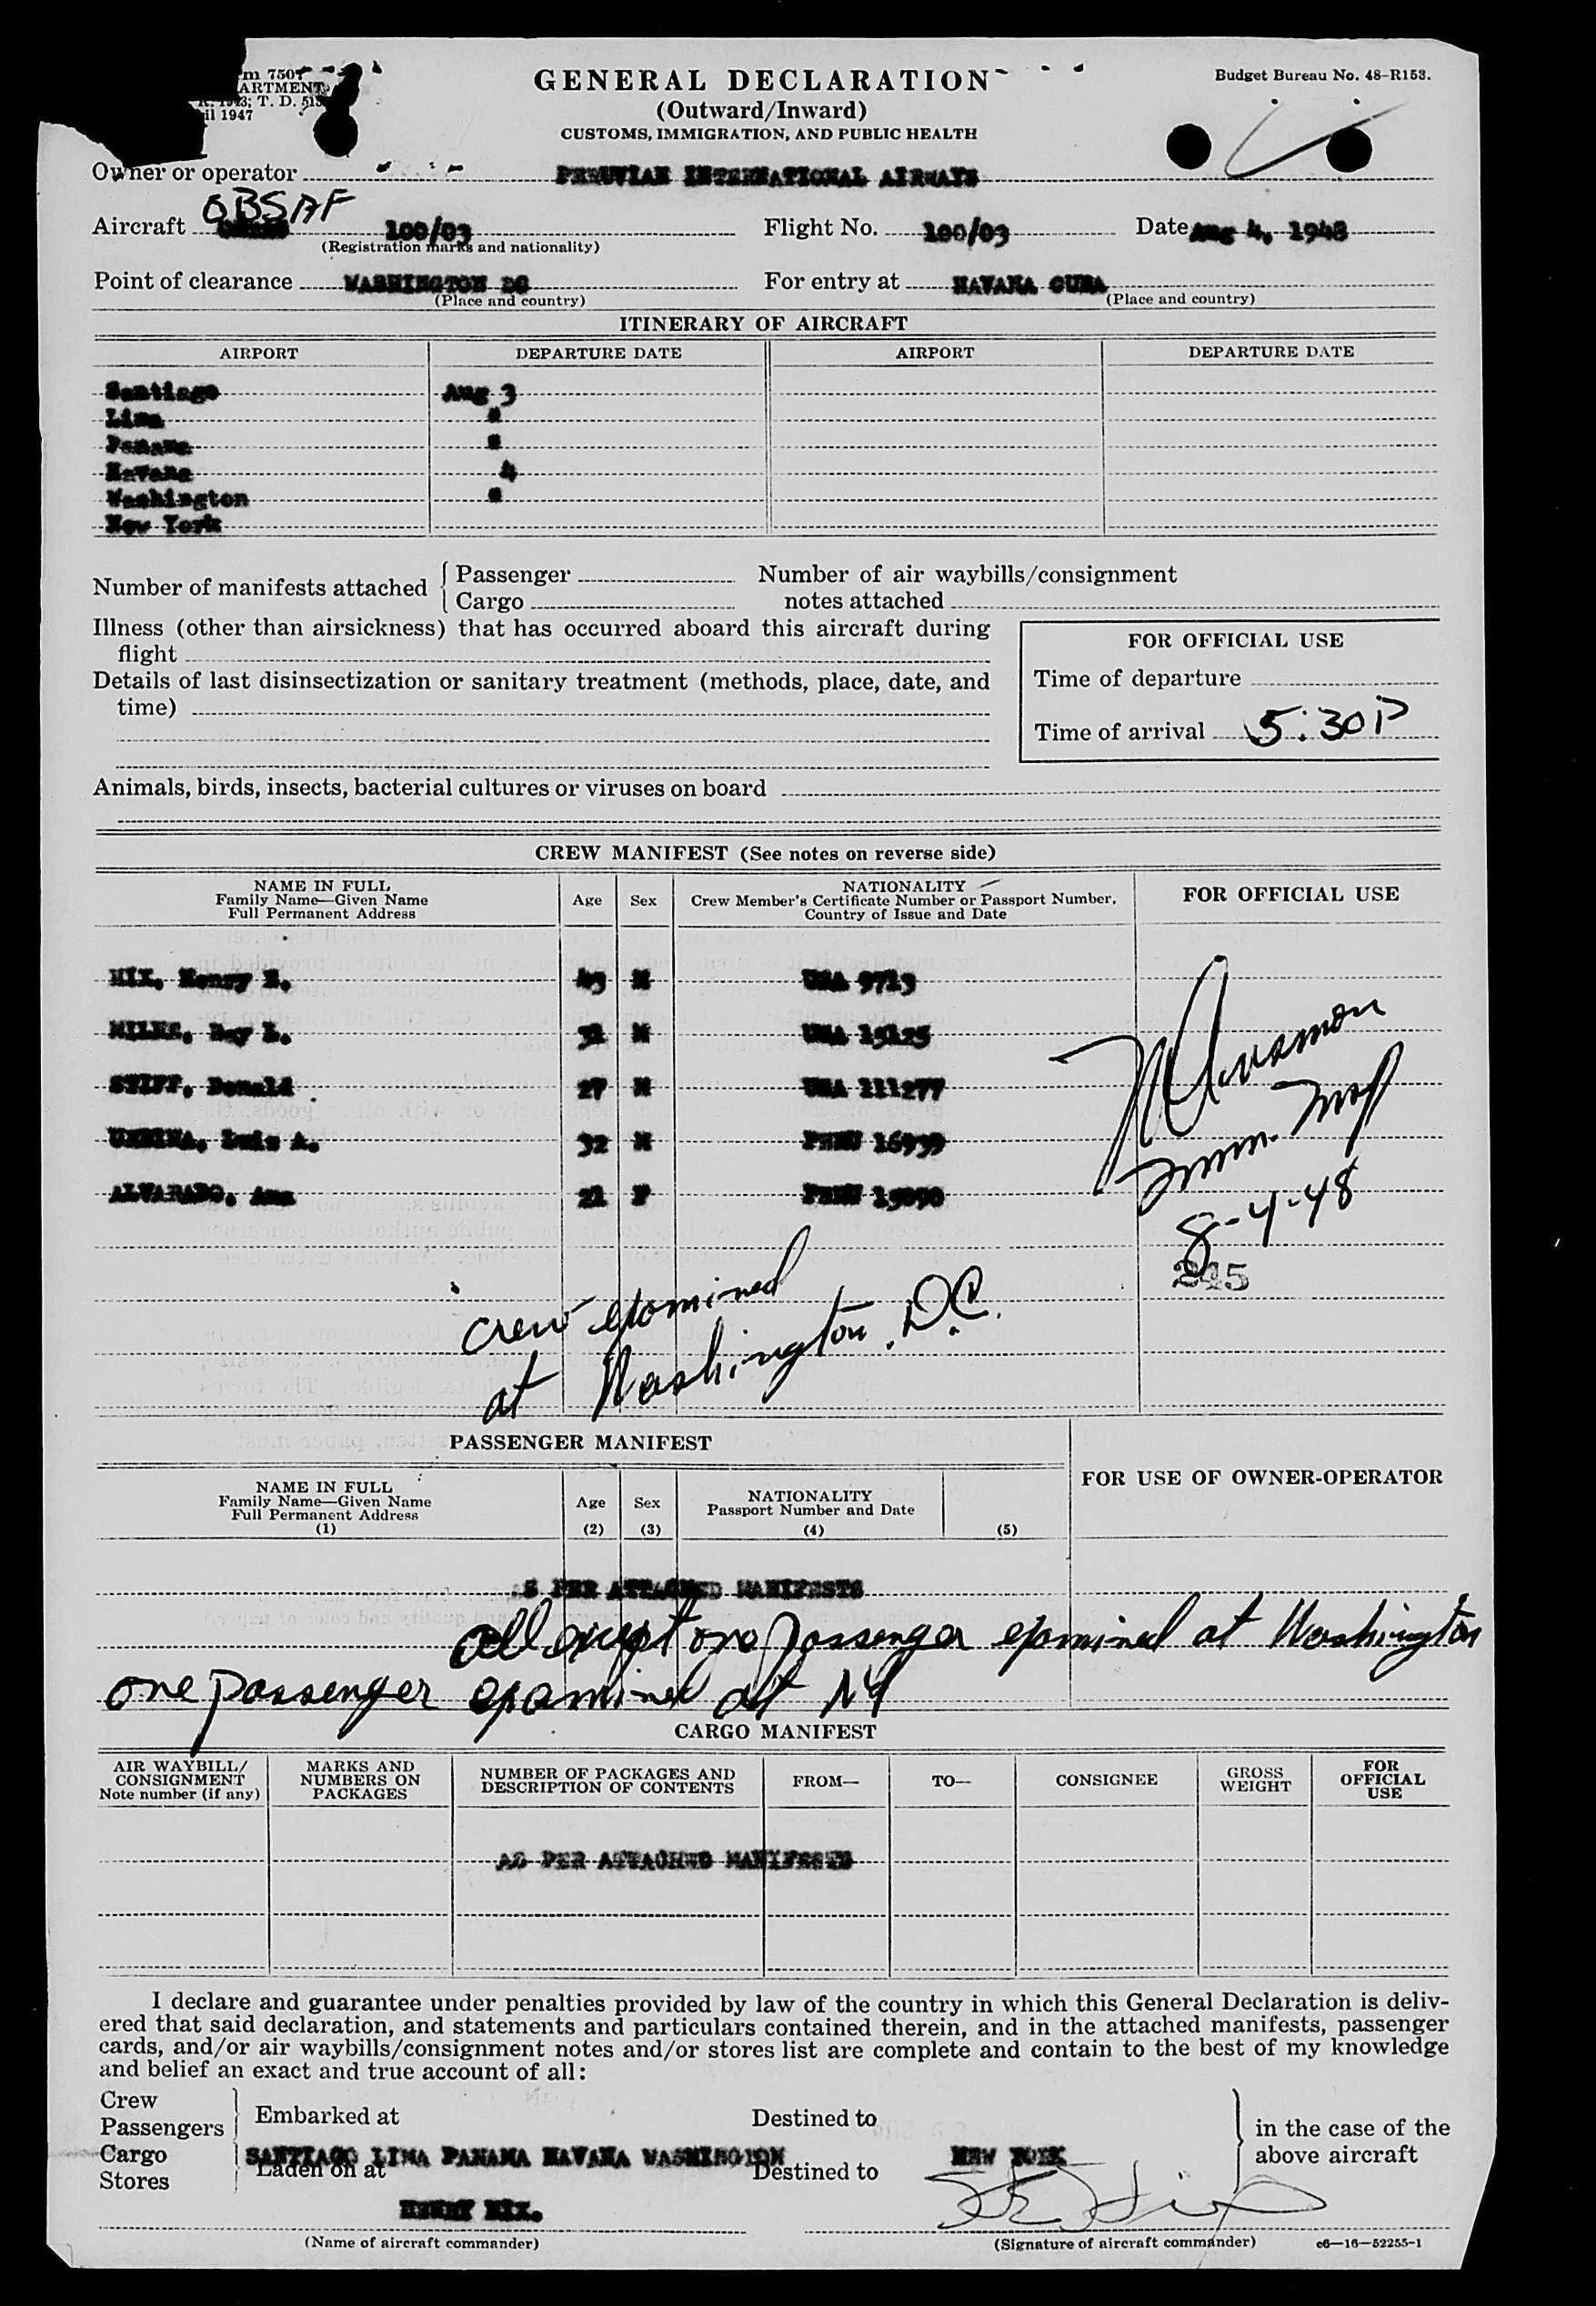 GENERAL DECLARATION
(Outward/Inward)
CUSTOMS, IMMIGRATION, AND PUBLIC HEALTH
Budget Bureau No. 48-R153.
m 7507
ARTMENT
il 1947
Owner or operator PERUVIAN INTERNATIONAL AIRWAYS
OBSAF
Aircraft 100/03 Flight No. 100/03 Date Aug 4, 1948
(Registration marks and nationality)
Point of clearance WASHINGTON DC For entry at HAVANA CUBA
(Place and country) (Place and country)
ITINERARY OF AIRCRAFT
AIRPORT DEPARTURE DATE AIRPORT DEPARTURE DATE
Santiago Aug 3
Lima "
Panama "
Havana 4
Washington "
New York
Number of manifests attached { Passenger Number of air waybills/consignment
Cargo notes attached
Illness (other than airsickness) that has occurred aboard this aircraft during
flight
FOR OFFICIAL USE
Details of last disinsectization or sanitary treatment (methods, place, date, and
time)
Time of departure
Time of arrival 5:30 P
Animals, birds, insects, bacterial cultures or viruses on board
CREW MANIFEST (See notes on reverse side)
NAME IN FULL
Family Name—Given Name
Full Permanent Address
Age Sex
NATIONALITY
Crew Member's Certificate Number or Passport Number,
Country of Issue and Date
FOR OFFICIAL USE
Henry 49 M USA 9713
Roy L. M USA 15125
STIFF, Donald 27 M USA 111277
Luis A. 32 M PERU 16939
ALVARADO, Ana 21 F PERU 15090
Imm. Insp
8-4-48
245
crew examined
at Washington, D.C.
PASSENGER MANIFEST
FOR USE OF OWNER-OPERATOR
NAME IN FULL
Family Name—Given Name
Full Permanent Address
(1)
Age
(2)
Sex
(3)
NATIONALITY
Passport Number and Date
(4)
(5)
S PER ATTACHED MANIFESTS
all except one passenger examined at Washington
one passenger examined at NY
CARGO MANIFEST
AIR WAYBILL/
CONSIGNMENT
Note number (if any)
MARKS AND
NUMBERS ON
PACKAGES
NUMBER OF PACKAGES AND
DESCRIPTION OF CONTENTS
FROM—
TO—
CONSIGNEE
GROSS
WEIGHT
FOR
OFFICIAL
USE
AS PER ATTACHED MANIFESTS
I declare and guarantee under penalties provided by law of the country in which this General Declaration is deliv-
ered that said declaration, and statements and particulars contained therein, and in the attached manifests, passenger
cards, and/or air waybills/consignment notes and/or stores list are complete and contain to the best of my knowledge
and belief an exact and true account of all:
Crew
Passengers
Cargo
Stores
Embarked at Destined to
SANTIAGO LIMA PANAMA HAVANA WASHINGTON NEW YORK
Laden on at Destined to
in the case of the
above aircraft
HENRY NIX.
(Name of aircraft commander) (Signature of aircraft commander) c6—16—52255-1